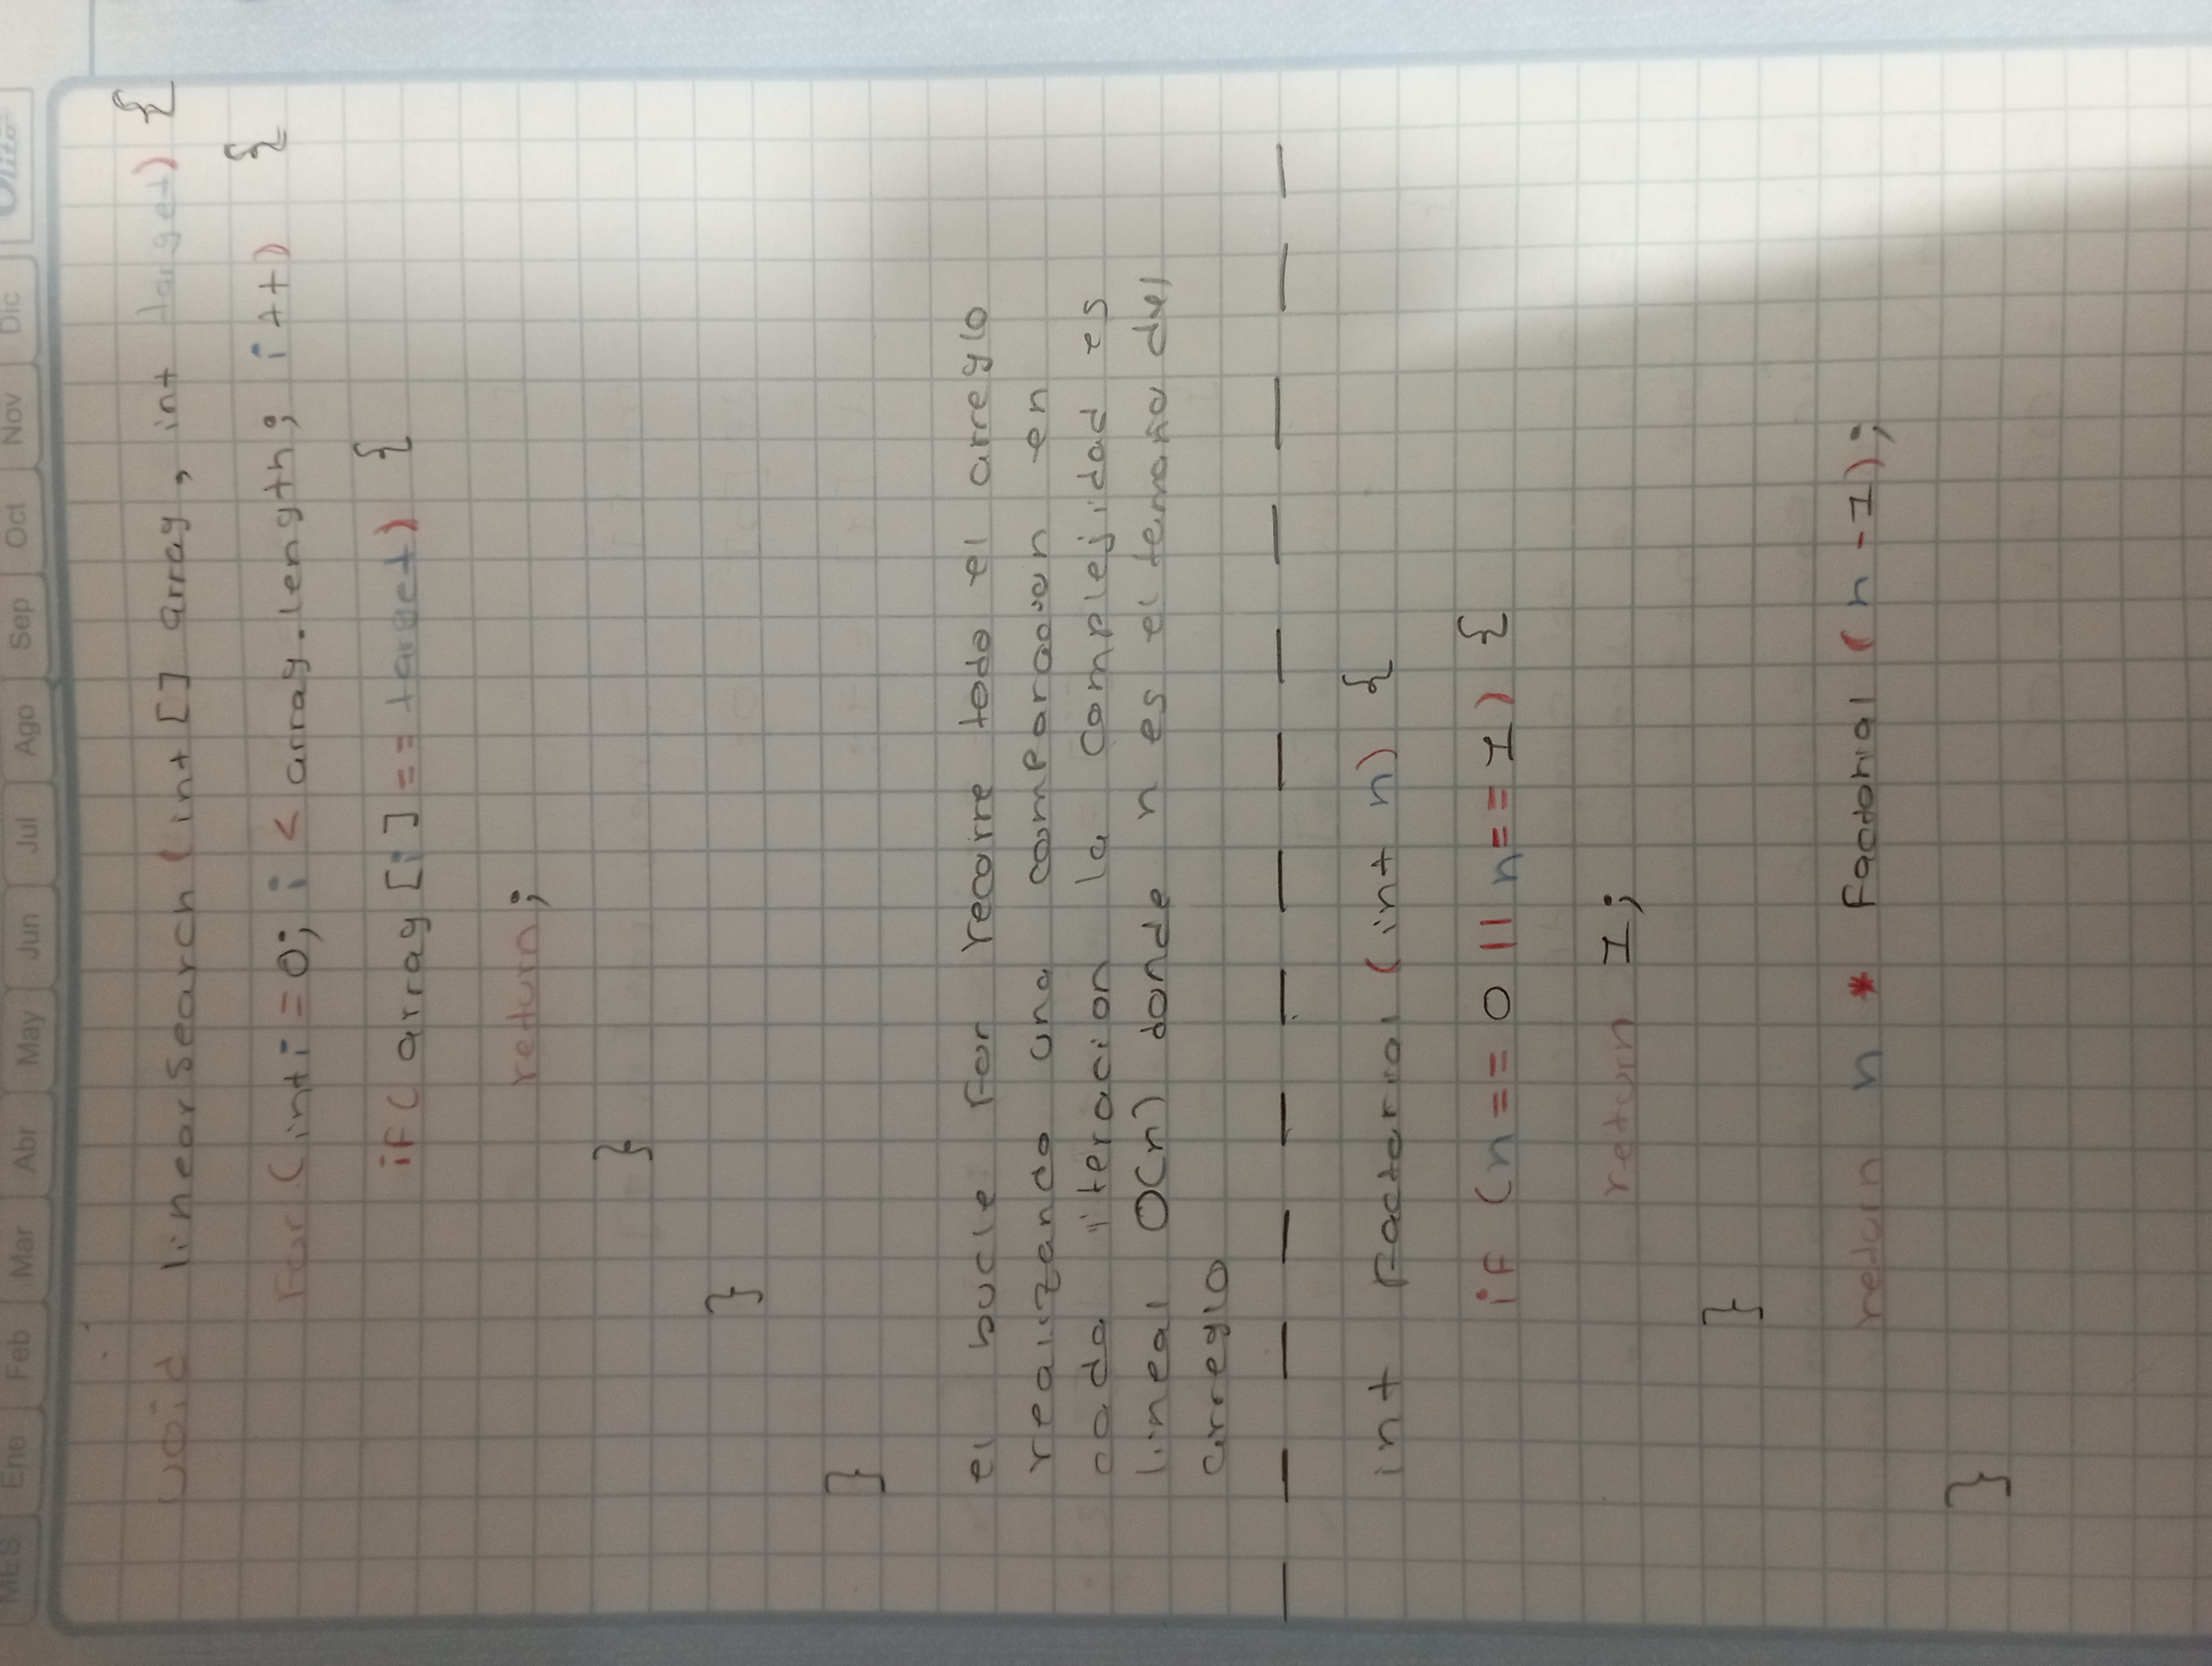 MES Ene Feb Mar Abr May Jun Jul Ago Sep Oct Nov Dic
void linearSearch (int [] array, int target) {
for (int i = 0; i < array.length; i++) {
if ( array [i] == target) {
return;
}
}
}
el bucle for recorre todo el arreglo
realizando una comparacion en
cada iteracion la complejidad es
lineal O(n) donde n es el tamaño del
arreglo
int Factorial (int n) {
if (n == 0 || n == 1) {
return 1;
}
return n * Factorial (n - 1);
}